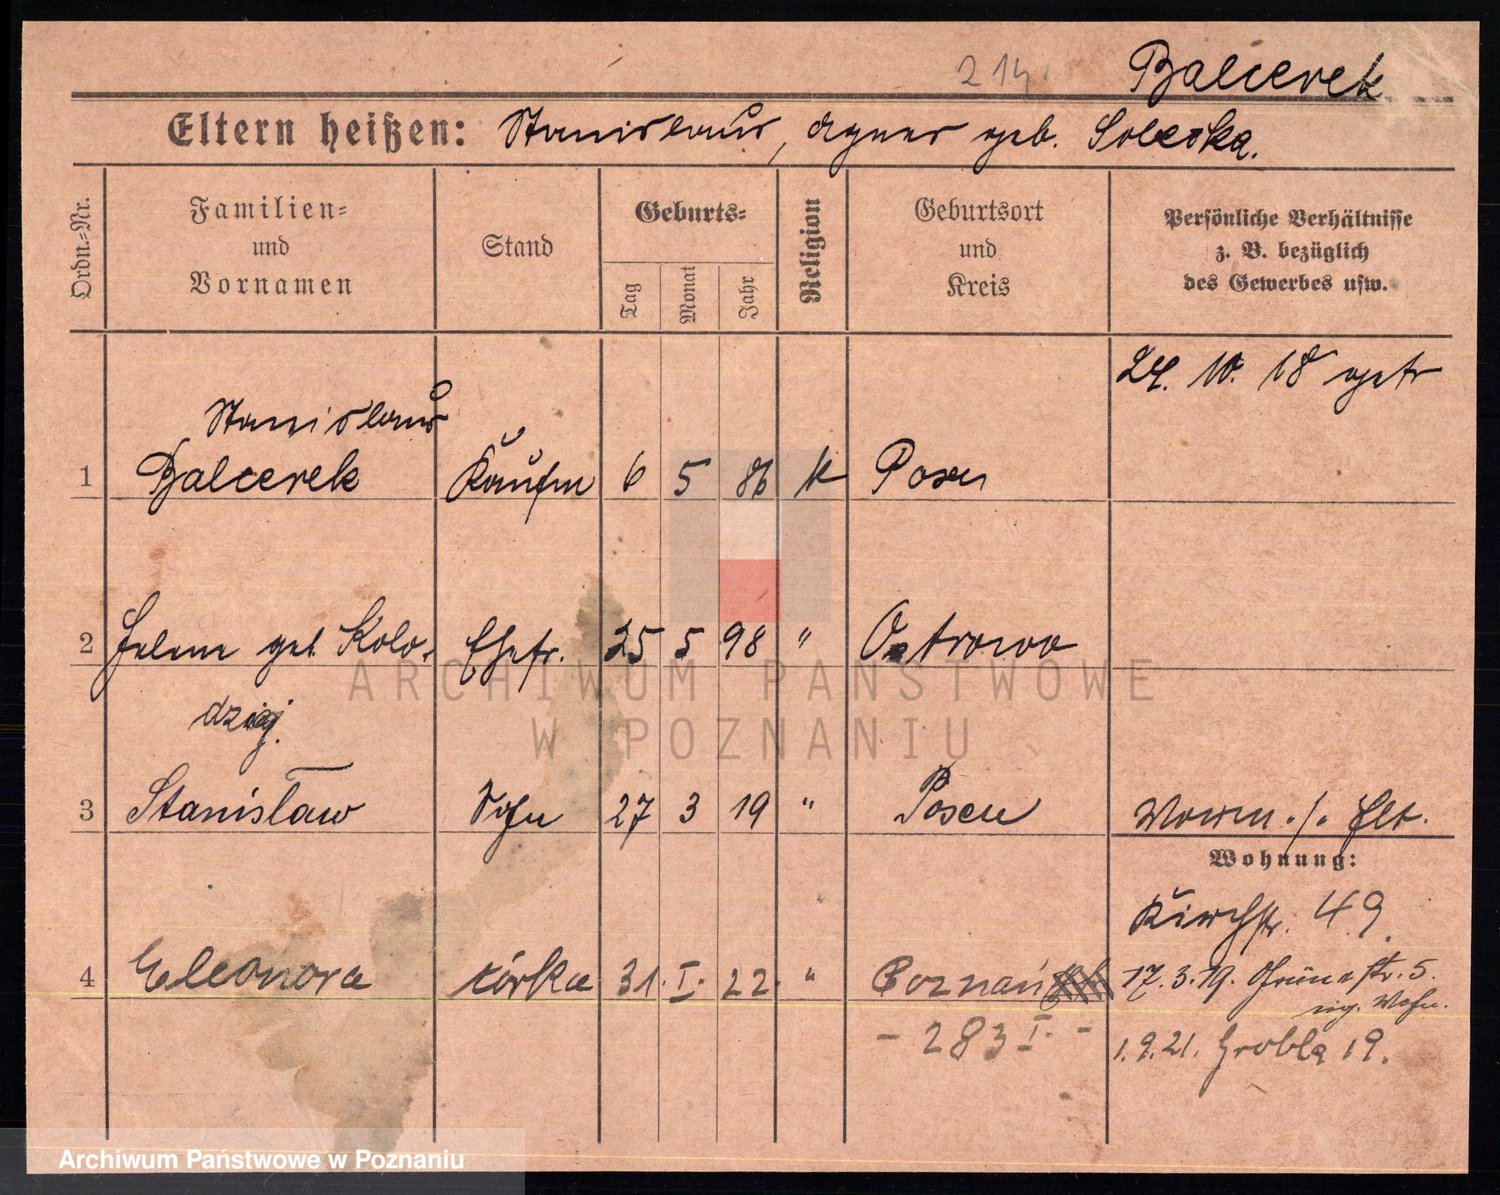 214
Balcerek
Eltern heißen: Stanislaus, Agnes geb. Soleska.
Ordn.-Nr.
Familien-
und
Vornamen
Stand
Geburts-
Tag
Monat
Jahr
Religion
Geburtsort
und
Kreis
Persönliche Verhältnisse
z. B. bezüglich
des Gewerbes usw.
24. 10. 18 getr
Stanislaus
1 Balcerek Kaufm 6 5 86 k Posen
2 Helene geb. Kolo- Ehefr. 25 5 98 " Ostrowo
dziej.
3 Stanisław Sohn 27 3 19 " Posen
Wohnung:
Kirchstr. 49.
4 Eleonora córka 31. I. 22. " Poznań
17. 3. 19. Grünestr. 5.
eig. Wohn.
- 283 I. -
1. 9. 21. Grobla 19.
ARCHIWUM PAŃSTWOWE
W POZNANIU
Archiwum Państwowe w Poznaniu